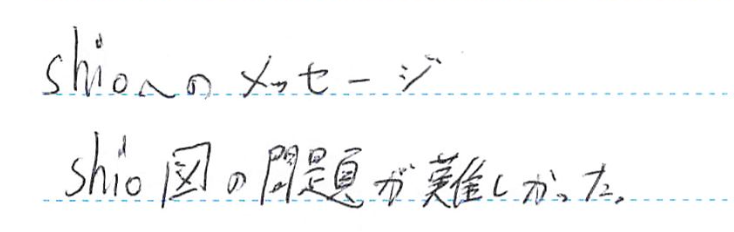 shioへのメッセージ
shio図の問題が難しかった。